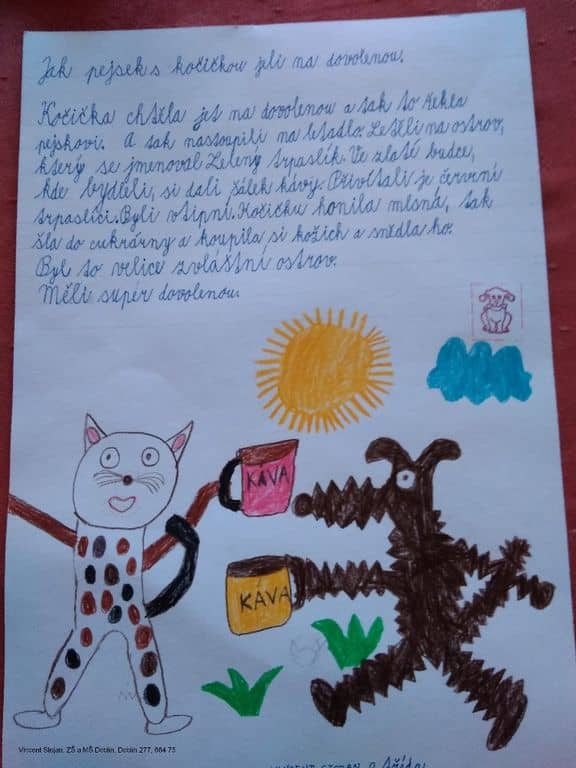 Jak pejsek s kočičkou jeli na dovolenou.
Kočička chtěla jet na dovolenou a tak to řekla
pejskovi. A tak nastoupili na letadlo. Letěli na ostrov,
který se jmenoval Zelený trpaslík. Ve zlaté budce,
kde bydleli, si dali šálek kávy. Přivítali je červení
trpaslíci. Byli vtipní. Kočičku honila mlsná, tak
šla do cukrárny a koupila si kožich a snědla ho.
Byl to velice zvláštní ostrov.
Měli super dovolenou.
KÁVA
KÁVA
Vincent Stejan, ZŠ a MŠ Drásov, Drásov 277, 664 75